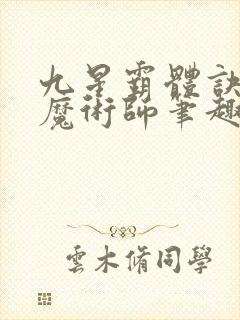 九星霸體訣
魔術師筆趣
雲木脩同學